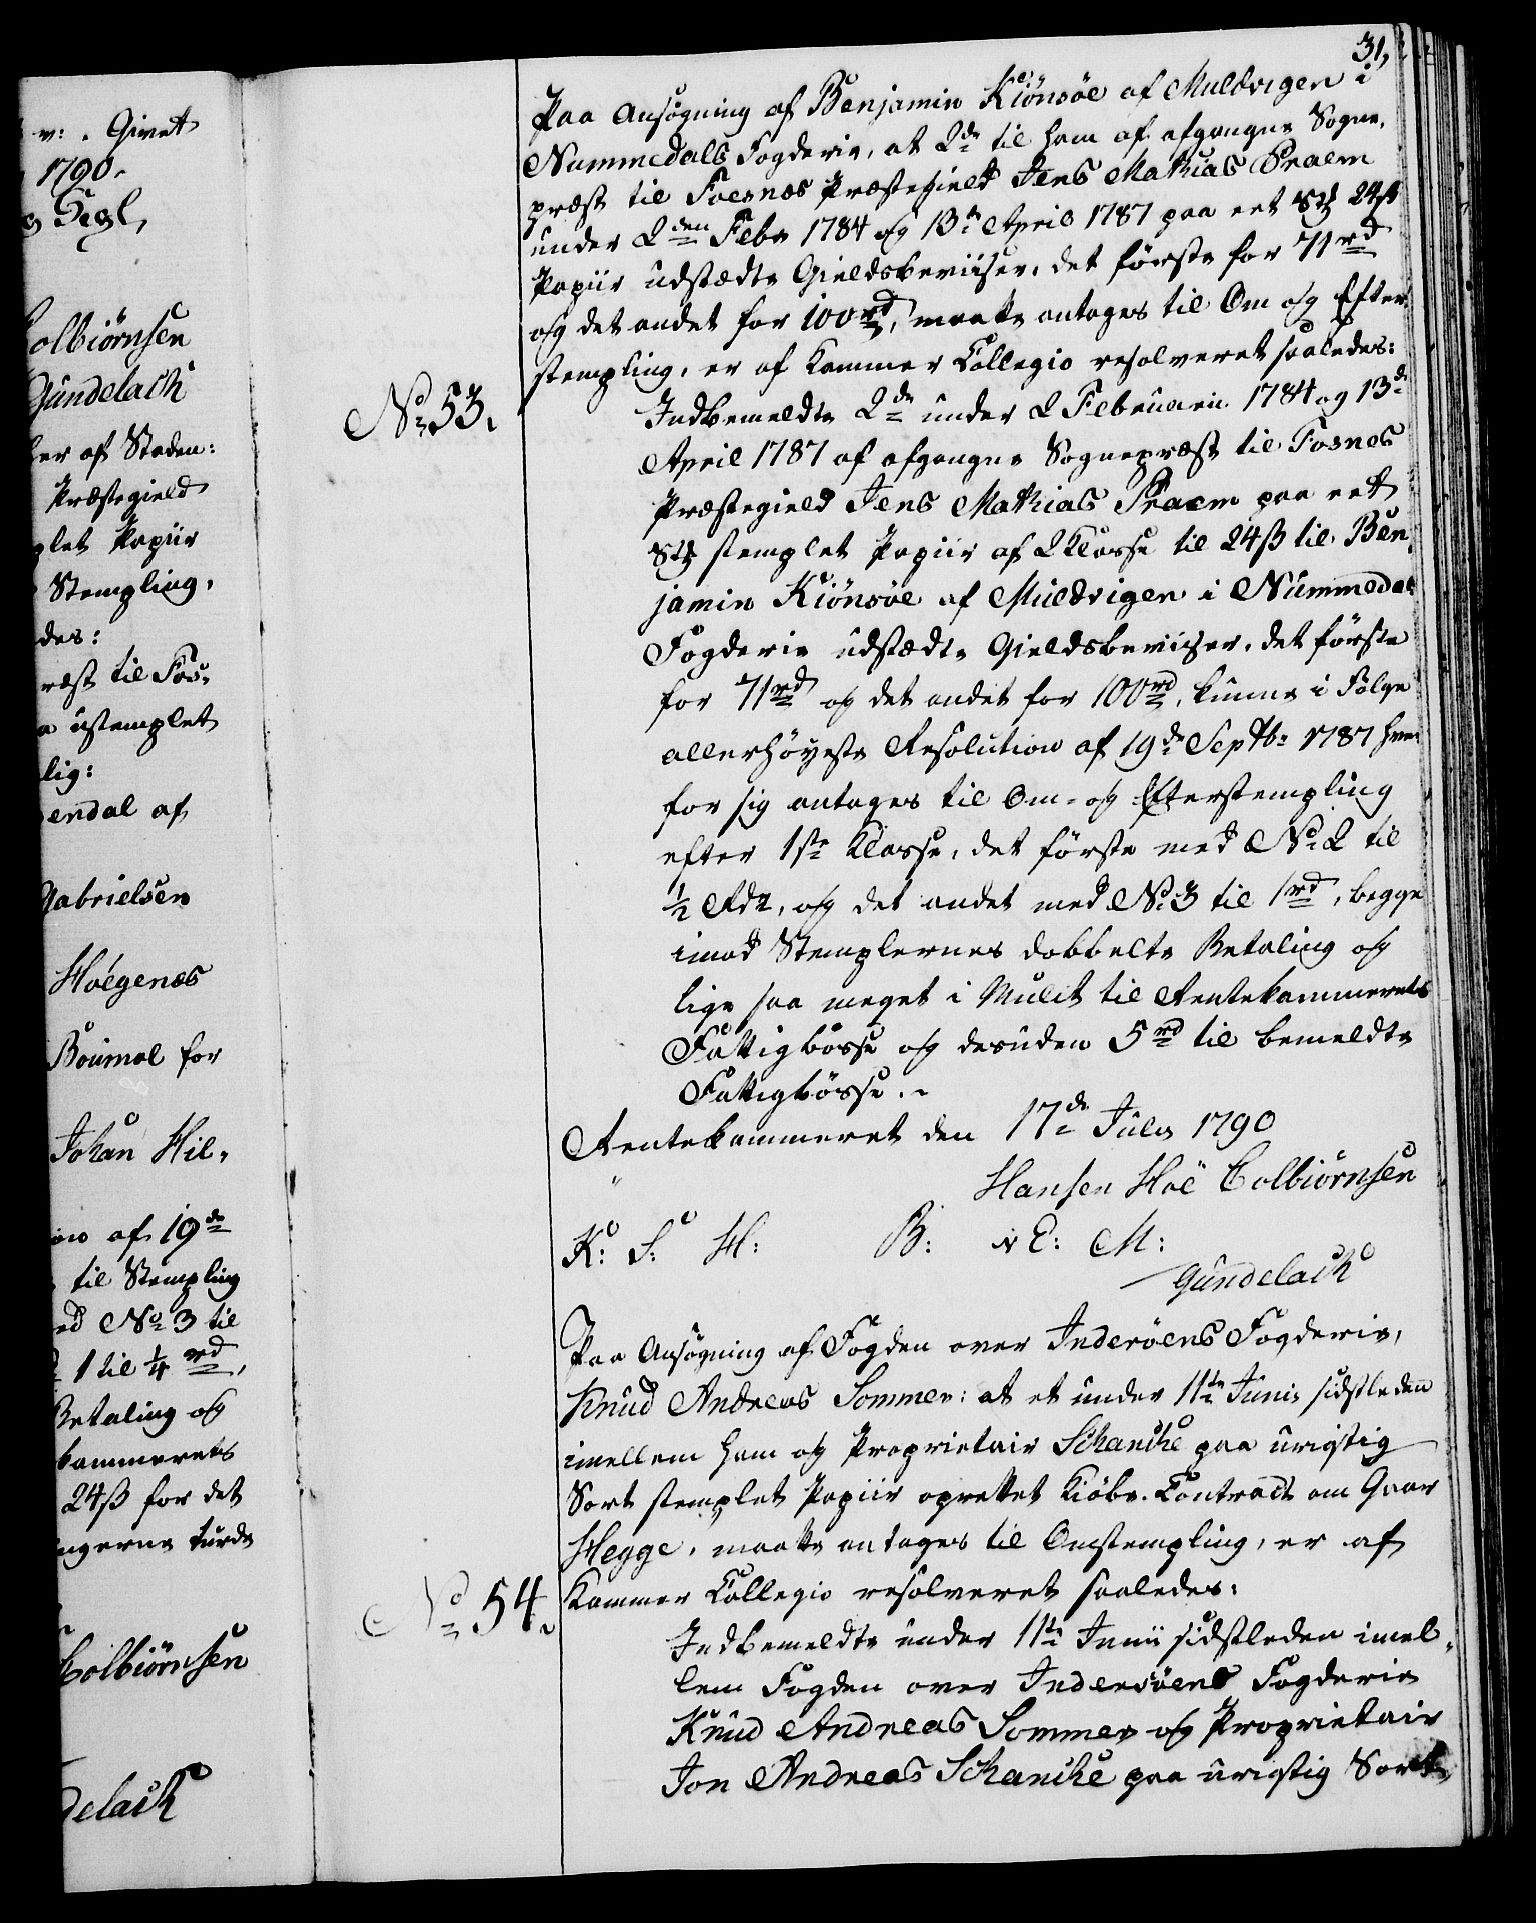 v: . Givet
1790.
Segl,
Colbiörnsen
Gundelach
her af Staden:
Præstegield
plet Papiir
Stempling,
des:
ræst til Fos-
a ustemplet
lig:
endal af
Gabrielsen
Höegenæs
Boumol for
Johan Hil-
ion af 19de
til Stempling
ed No 3 til
1 til 1/4 rd,
Betaling og
kammerets
24ß for det
ngerne turde
Colbiörnsen
delach
31,
Paa Ansøgning af Benjamin Kiönsöe af Muldvigen i
Nummedals Fogderie, at 2de til ham af afgangne Sogne-
præst til Foesnæs Præstegield Jens Mathias Praem
under 2den Febr 1784 og 13de April 1787 paa eet Stk 24ß
Papiir udstædte Gieldsbeviiser, det første for 71rd
og det andet for 100rd, maatte antages til Om og Efter-
stempling, er af Kammer Collegio resolveret saaledes:
No 53.
Indbemeldte 2de under 2 Februarii 1784 og 13de
April 1787 af afgangne Sognepræst til Fosnes
Præstegield Jens Mathias Praem paa eet
Stk stemplet Papiir af 2 Klasse til 24ß til Ben-
jamin Kiönsöe af Muldvigen i Nummedals
Fogderie udstædte Gieldsbeviiser, det første
for 71rd og det andet for 100rd, kunne i Følge
allerhøyeste Resolution af 19de Septbr 1787 hver
for sig antages til Om- og Efterstempling
efter 1ste Klasse, det første med No 2 til
1/2 Rdr, og det andet med No 3 til 1rd, begge
imod Stemplernes dobbelte Betaling og
lige saa meget i Mulct til Rentekammerets
Fattigbøsse og desuden 5rd til bemeldte
Fattigbøsse.
Rentekammeret den 17de Julii 1790
Hansen Höe Colbiörnsen
K: S: H: B: v E: M:
Gundelach
Paa Ansøgning af Fogden over Inderöens Fogderie,
Knud Andreas Sommer: at et under 11te Junii sidstleden
imellem ham og Proprietair Schanche paa urigtig
Sort stemplet Papiir oprettet Kiöbe-Contract om Gaar
Hegge, maatte antages til Omstempling, er af
Kammer Collegio resolveret saaledes:
No 54.
Indbemeldte under 11te Junii sidstleden imel-
lem Fogden over Inderöens Fogderie
Knud Andreas Sommer og Proprietair
Jon Andreas Schanche paa urigtig Sort